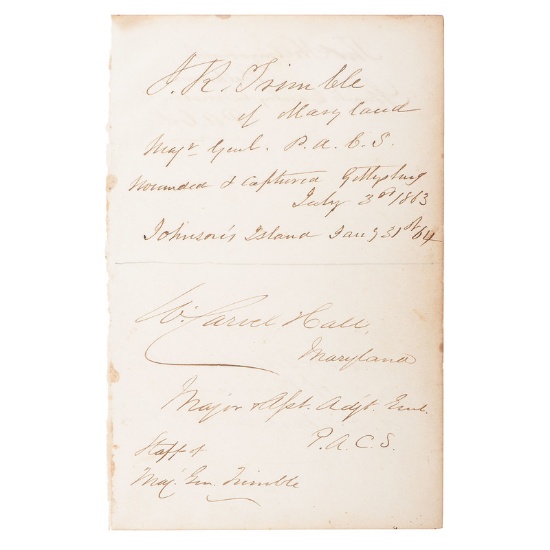 J. R. Trimble
of Maryland
Majr Genl. P. A. C. S.
Wounded & Captured Gettysburg
July 3rd 1863
Johnson's Island Jany 31st 64
W. Carvel Hall,
Maryland
Major & Asst. Adjt. Genl.
P.A.C.S.
Staff of
Maj. Gen. Trimble